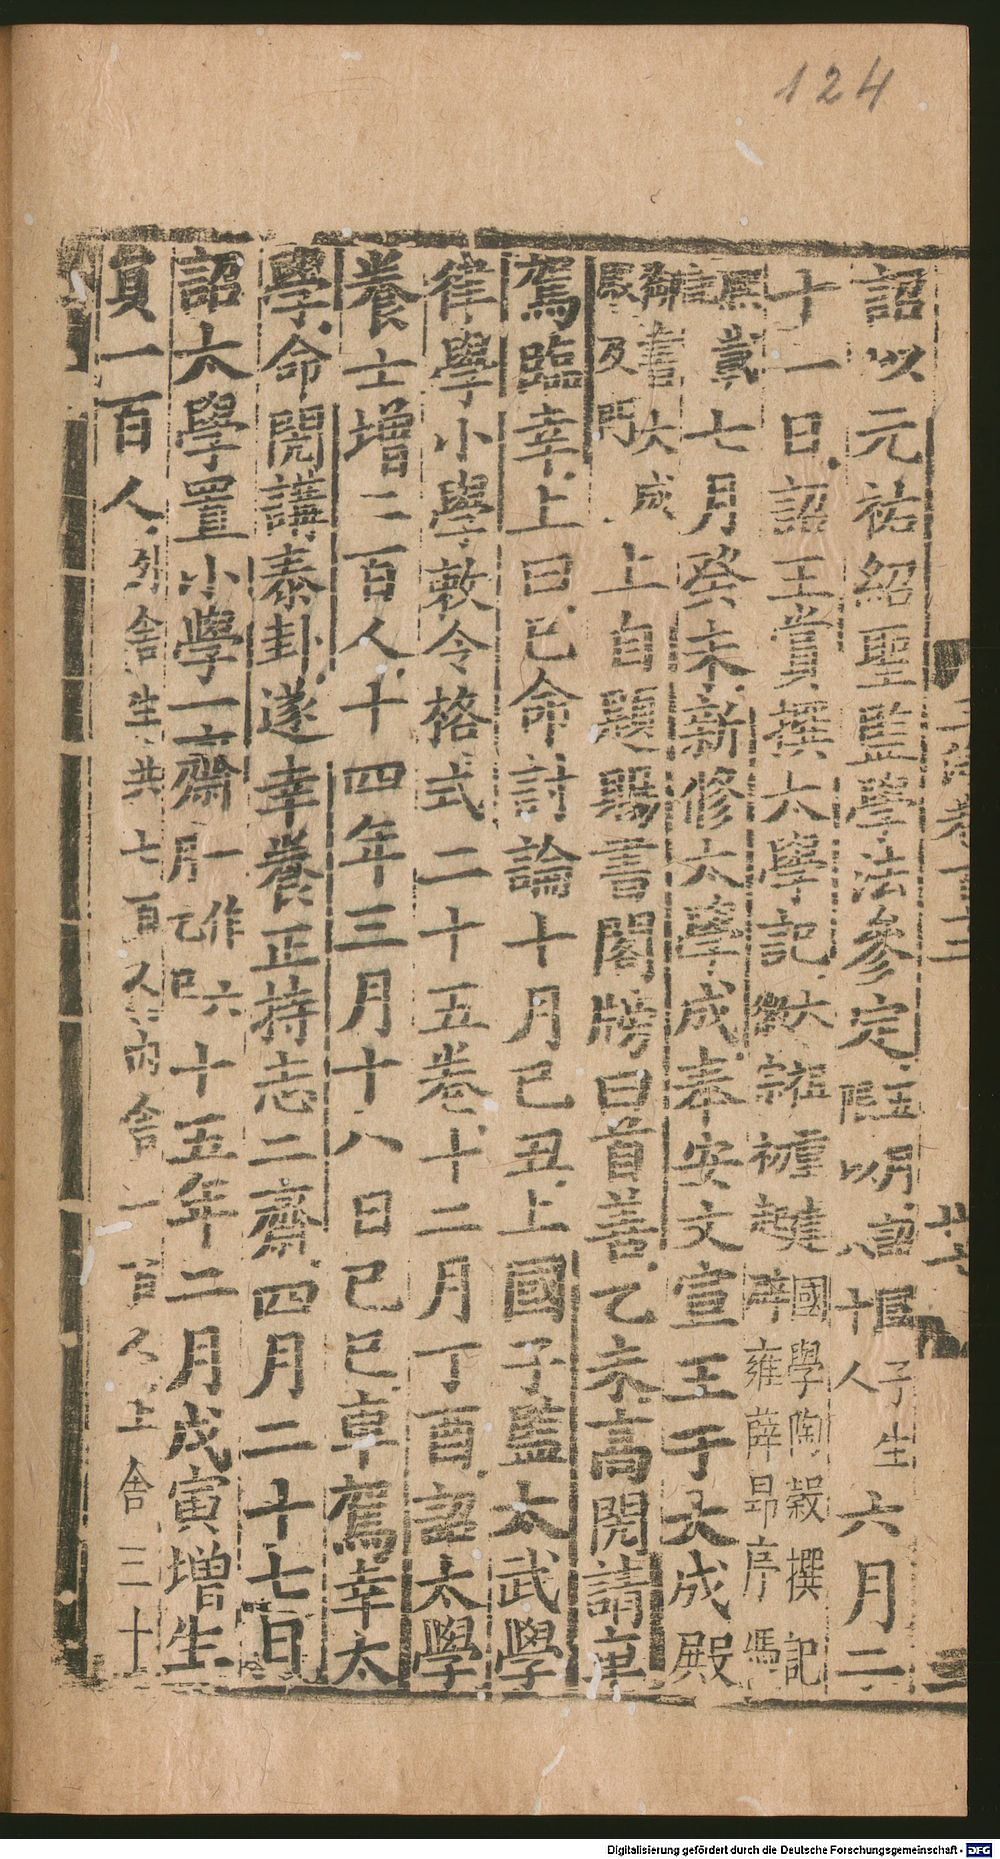 124
詔以元祐紹聖監學法參定

子生
六月二
十一日詔王賞撰太學記
大
國學陶穀撰記
辟雍薛昂序馮
熙載
七月癸未新修太學成奉安文宣王于大成殿
御書大成
殿及門
上自題賜書閣牓曰首善乙未高閌請車
駕臨幸上曰已命討論十月己丑上國子監太武學
律學小學敕令格式二十五卷十二月丁酉詔太學
養士增二百人十四年三月十八日己巳車駕幸太
學命閌講泰卦遂幸養正持志二齋四月二十七日
詔太學置小學一齋
一作六
月乙巳
十五年二月戊寅增生
員一百人
外舍生共七百人內舍一百人上舍三十
Digitalisierung gefördert durch die Deutsche Forschungsgemeinschaft - DFG